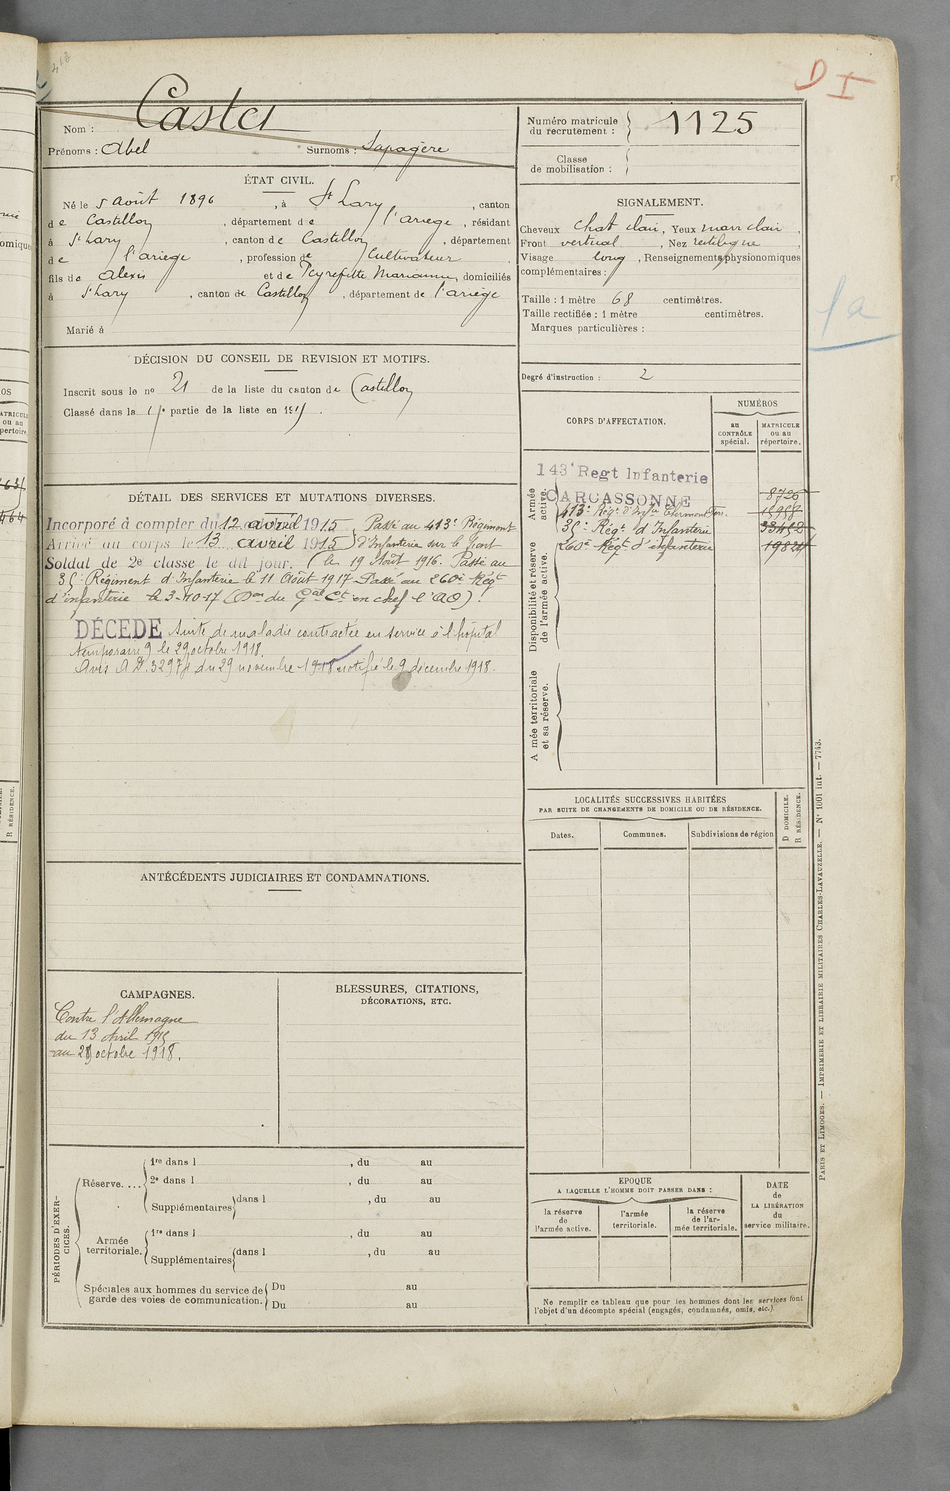 D I
Castet
Nom :
Prénoms : Abel Surnoms : Lapagère
Numéro matricule
du recrutement : 1125
Classe
de mobilisation :
ÉTAT CIVIL.
Né le 5 Août 1896, à St Lary, canton
de Castillon, département de l'ariège, résidant
à St Lary, canton de Castillon, département
de l'ariège, profession de Cultivateur
fils de Alexis et de Peyrefitte Marianne, domiciliés
à St Lary, canton de Castillon, département de l'ariège
Marié à
SIGNALEMENT.
Cheveux chat clair, Yeux marr clair,
Front vertical, Nez rectiligne
Visage long, Renseignements physionomiques
complémentaires :
Taille : 1 mètre 68 centimètres.
Taille rectifiée : 1 mètre centimètres.
Marques particulières :
1a
Degré d'instruction : 2
DÉCISION DU CONSEIL DE REVISION ET MOTIFS.
Inscrit sous le no 21 de la liste du canton de Castillon
Classé dans la 1re partie de la liste en 1915.
CORPS D'AFFECTATION.
NUMÉROS
au
CONTRÔLE
spécial.
MATRICULE
ou au
répertoire.
Armée
active.
143e Regt Infanterie
CARCASSONNE 8726
413e Rég. d'Inf.ie
35e Régt d'Infanterie
260e Régt d'infanterie
Disponibilité et réserve
de l'armée active.
A mée territoriale
et sa réserve.
DÉTAIL DES SERVICES ET MUTATIONS DIVERSES.
Incorporé à compter du 12 avril 1915, Passé au 413e Régiment
Arrivé au corps le 13 avril 1915 d'Infanterie sur le front
Soldat de 2e classe le dit jour. (le 19 Août 1916. Passé au
35e Régiment d'Infanterie le 11 Août 1917 Passé au 260e Régt
d'infanterie le 3-10-17 (Don du Gal Ct en chef l'AO).
DÉCÉDÉ Suite de maladie contractée en service à l'hôpital
temporaire 9 le 29 octobre 1918.
Avis A.D. 5297 du 29 novembre 1918 notifié le 9 décembre 1918.
LOCALITÉS SUCCESSIVES HABITÉES
PAR SUITE DE CHANGEMENTS DE DOMICILE OU DE RÉSIDENCE.
D DOMICILE.
R RÉSIDENCE.
Dates. Communes. Subdivisions de région
ANTÉCÉDENTS JUDICIAIRES ET CONDAMNATIONS.
CAMPAGNES.
Contre l'Allemagne
du 13 Avril 1915
au 29 octobre 1918.
BLESSURES, CITATIONS,
DÉCORATIONS, ETC.
PÉRIODES D'EXER-
CICES.
Réserve....
1re dans l , du au
2e dans l , du au
Supplémentaires dans l , du au
Armée
territoriale.
1re dans l , du au
Supplémentaires dans l , du au
Spéciales aux hommes du service de
garde des voies de communication.
Du au
Du au
EPOQUE
A LAQUELLE L'HOMME DOIT PASSER DANS :
la réserve
de
l'armée active.
l'armée
territoriale.
la réserve
de l'ar-
mée territoriale.
DATE
de
LA LIBÉRATION
du
service militaire.
Ne remplir ce tableau que pour les hommes dont les services font
l'objet d'un décompte spécial (engagés, condamnés, omis, etc.).
PARIS ET LIMOGES. — IMPRIMERIE ET LIBRAIRIE MILITAIRES CHARLES-LAVAUZELLE. — No 1001 int. — 7743.